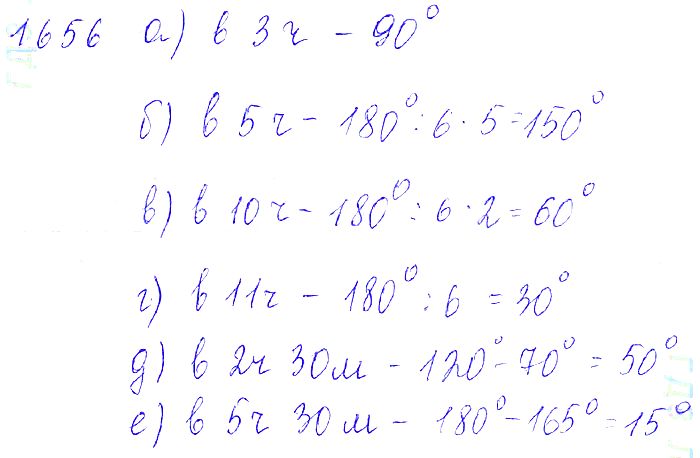 1656 а) в 3ч - 90°
б) в 5ч - 180° : 6 · 5 = 150°
в) в 10ч - 180° : 6 · 2 = 60°
г) в 11ч - 180° : 6 = 30°
д) в 2ч 30м - 120° - 70° = 50°
е) в 5ч 30м - 180° - 165° = 15°